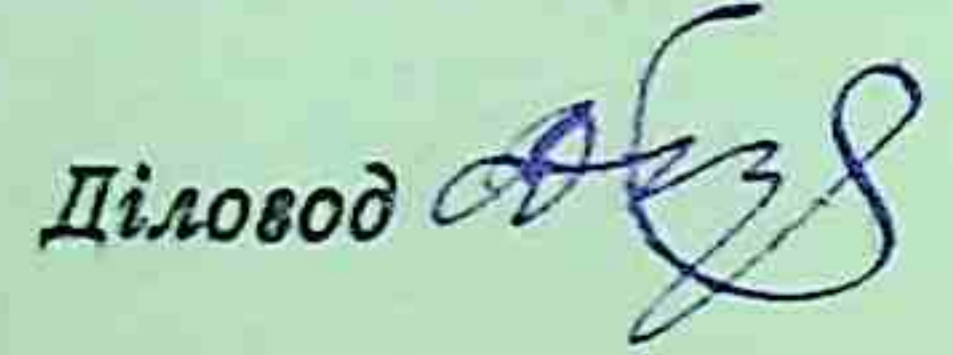 Діловод